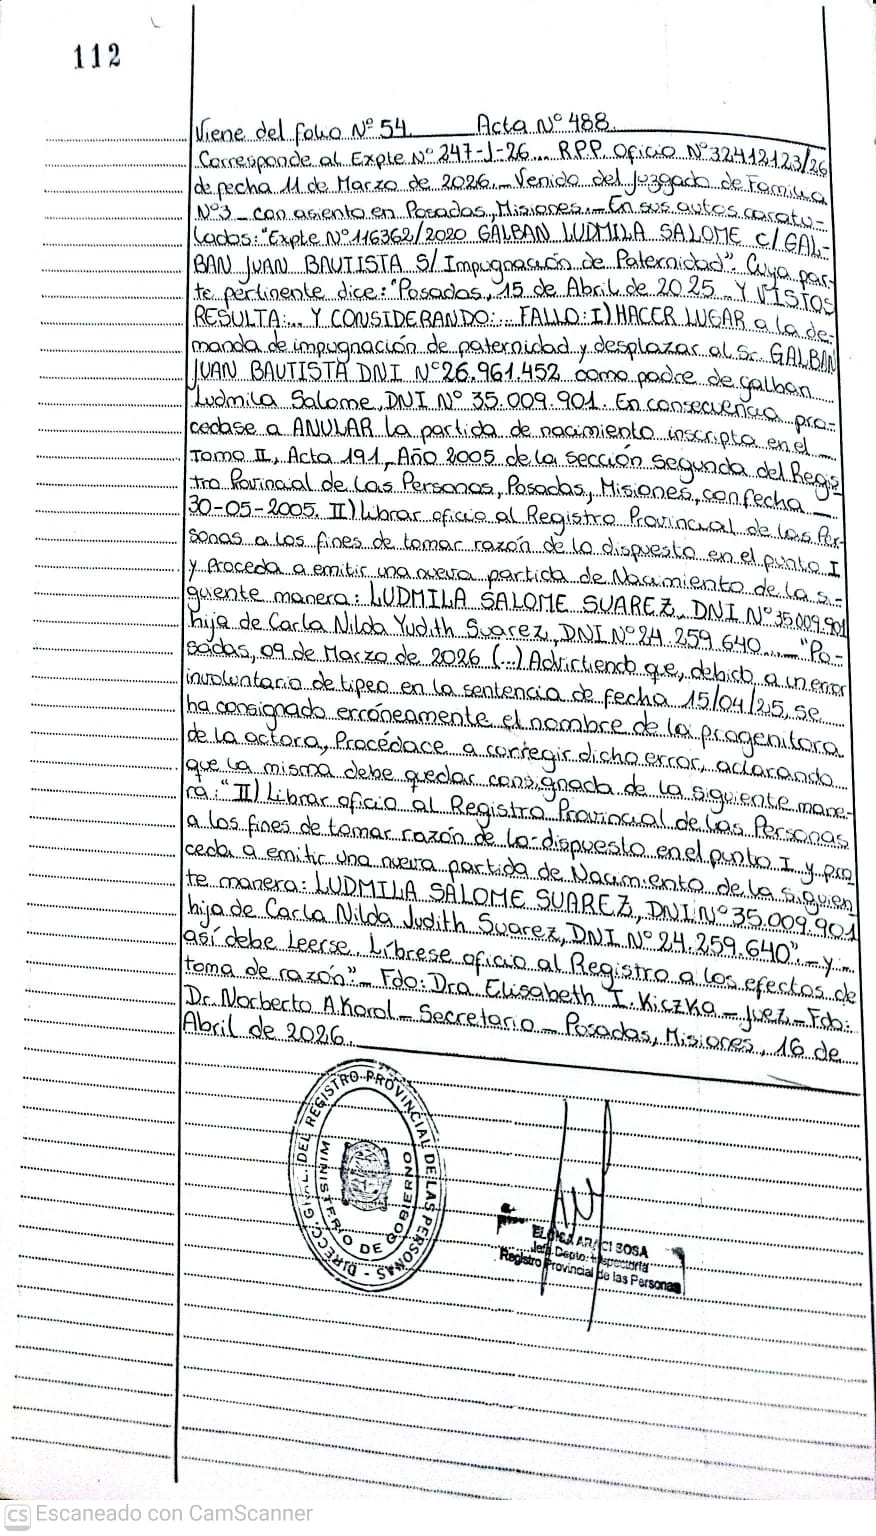 112
Viene del folio Nº 54. Acta Nº 488.
Corresponde al Expte Nº 247-J-26... RPP. Oficio Nº 32412123/26
de fecha 11 de Marzo de 2026.- Venido del Juzgado de Familia
Nº3 - con asiento en Posadas, Misiones.- En sus autos caratu-
lados: "Expte Nº 116362/2020 GALBAN LUDMILA SALOME C/ GAL-
BAN JUAN BAUTISTA S/ Impugnación de Paternidad". Cuya par-
te pertinente dice: "Posadas, 15 de Abril de 2025.- Y VISTOS
RESULTA:... Y CONSIDERANDO:... FALLO: I) HACER LUGAR a la de-
manda de impugnación de paternidad y desplazar al Sr. GALBAN
JUAN BAUTISTA DNI Nº 26.961.452 como padre de galban
Ludmila Salome, DNI Nº 35.009.901. En consecuencia pro-
cedase a ANULAR la partida de nacimiento inscripta en el -
Tomo II, Acta 191, Año 2005 de la sección segunda del Regis-
tro Provincial de las Personas, Posadas, Misiones, con fecha -
30-05-2005. II) Librar oficio al Registro Provincial de las Per-
sonas a los fines de tomar razón de lo dispuesto en el punto I
y proceda a emitir una nueva partida de Nacimiento de la si-
guiente manera: LUDMILA SALOME SUAREZ, DNI Nº 35.009.901
hija de Carla Nilda Yudith Suarez, DNI Nº 24.259.640...- "Po-
sadas, 09 de Marzo de 2026 (...) Advirtiendo que, debido a un error
involuntario de tipeo en la sentencia de fecha 15/04/25, se
ha consignado erróneamente el nombre de la progenitora
de la actora, Procédace a corregir dicho error, aclarando
que la misma debe quedar consignada de la siguiente mane-
ra: "II) Librar oficio al Registro Provincial de las Personas
a los fines de tomar razón de lo dispuesto en el punto I y pro
ceda a emitir una nueva partida de Nacimiento de la siguien
te manera: LUDMILA SALOME SUAREZ, DNI Nº 35.009.901
hija de Carla Nilda Judith Suarez, DNI Nº 24.259.640".- y -
así debe Leerse. Líbrese oficio al Registro a los efectos de
toma de razón".- Fdo: Dra Elisabeth I. Kiczka - Juez - Fdo:
Dr. Norberto A. Korol - Secretario - Posadas, Misiones, 16 de
Abril de 2026.
DIRECC. GRAL. DEL REGISTRO PROVINCIAL DE LAS PERSONAS -
MINISTERIO DE GOBIERNO
ELOISA ARACI SOSA
Jefa Depto. Inspectoría
Registro Provincial de las Personas
CS Escaneado con CamScanner